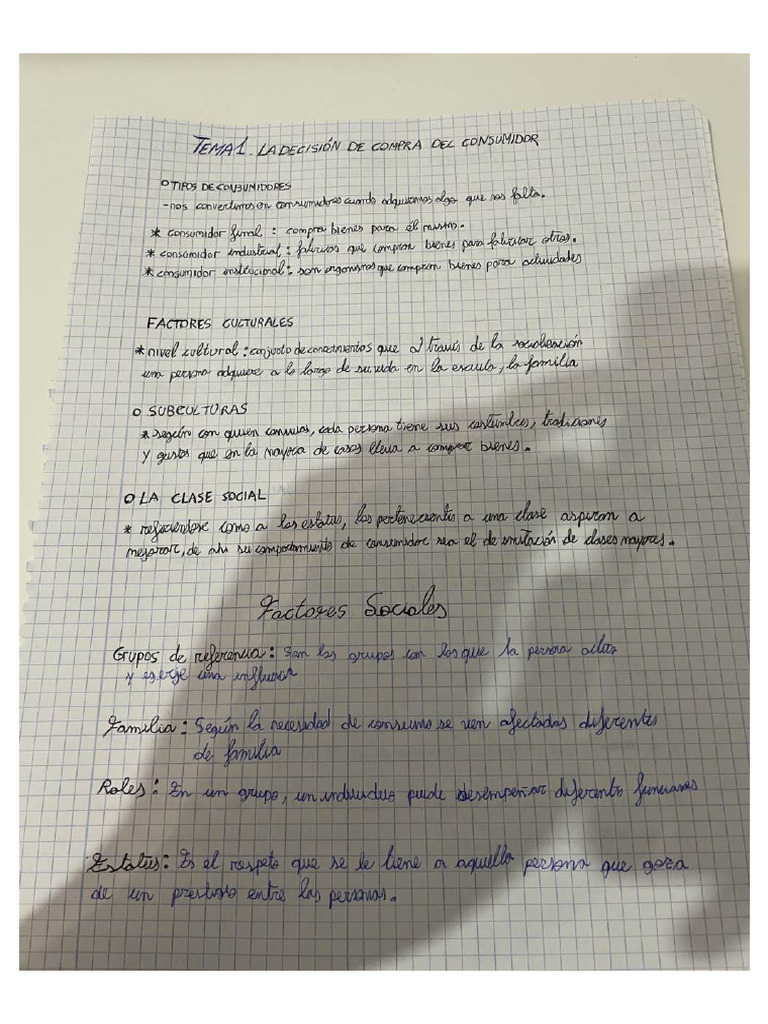 TEMA 1. LA DECISIÓN DE COMPRA DEL CONSUMIDOR
O TIPOS DE CONSUMIDORES
- nos convertimos en consumidores cuando adquirimos algo que nos falta.
* consumidor final : compra bienes para él mismo.
* consumidor industrial : fabricas que compran bienes para fabricar otros.
* consumidor institucional : son organismos que compran bienes para actividades
FACTORES CULTURALES
* nivel cultural : conjunto de conocimientos que a través de la socialización
una persona adquiere a lo largo de su vida en la escuela, la familia
O SUBCULTURAS
* según con quien convivas, cada persona tiene sus costumbres, tradiciones
y gustos que en la mayoria de casos lleva a comprar bienes.
O LA CLASE SOCIAL
* refiriendose como a los estatus, los pertenecientes a una clase aspiran a
mejorar, de ahi su comportamiento de consumidor sea el de imitación de clases mayores.
Factores Sociales
Grupos de referencia : Son los grupos con los que la persona actua
y ejerce una influencia
Familia : Según la necesidad de consumo se ven afectadas diferentes
de familia
Roles : En un grupo, un individuo puede desempeñar diferentes funciones
Estatus : Es el respeto que se le tiene a aquella persona que goza
de un prestigio entre las personas.